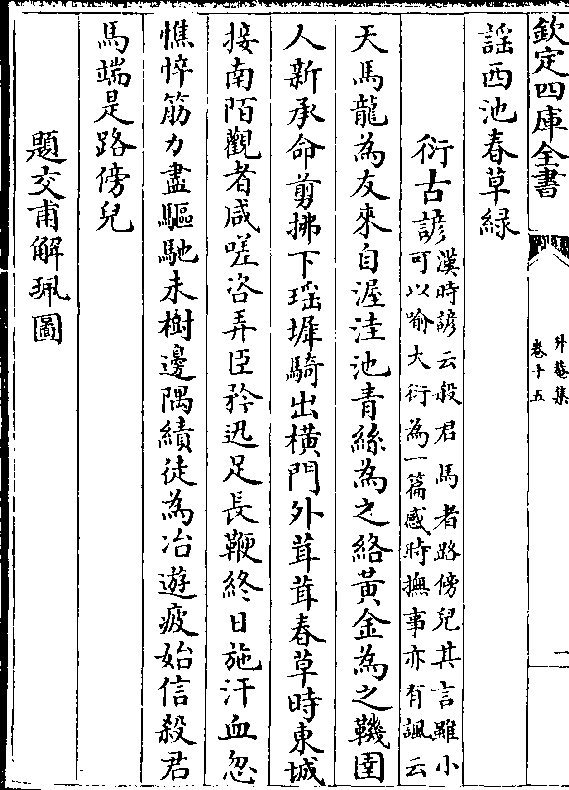 欽定四庫全書
升菴集
卷十五
一
謡西池春草綠
衍古諺
漢時諺云殺君馬者路傍兒其言雖小
可以喻大衍為一篇感時撫事亦有諷云
天馬龍為友來自渥洼池青絲為之絡黃金為之鞿圉
人新承命剪拂下瑶墀騎出橫門外茸茸春草時東城
接南陌觀者咸嗟咨弄臣矜迅足長鞭終日施汗血忽
憔悴筋力盡驅馳未樹邊隅績徒為冶遊疲始信殺君
馬端是路傍兒
題交甫解珮圖